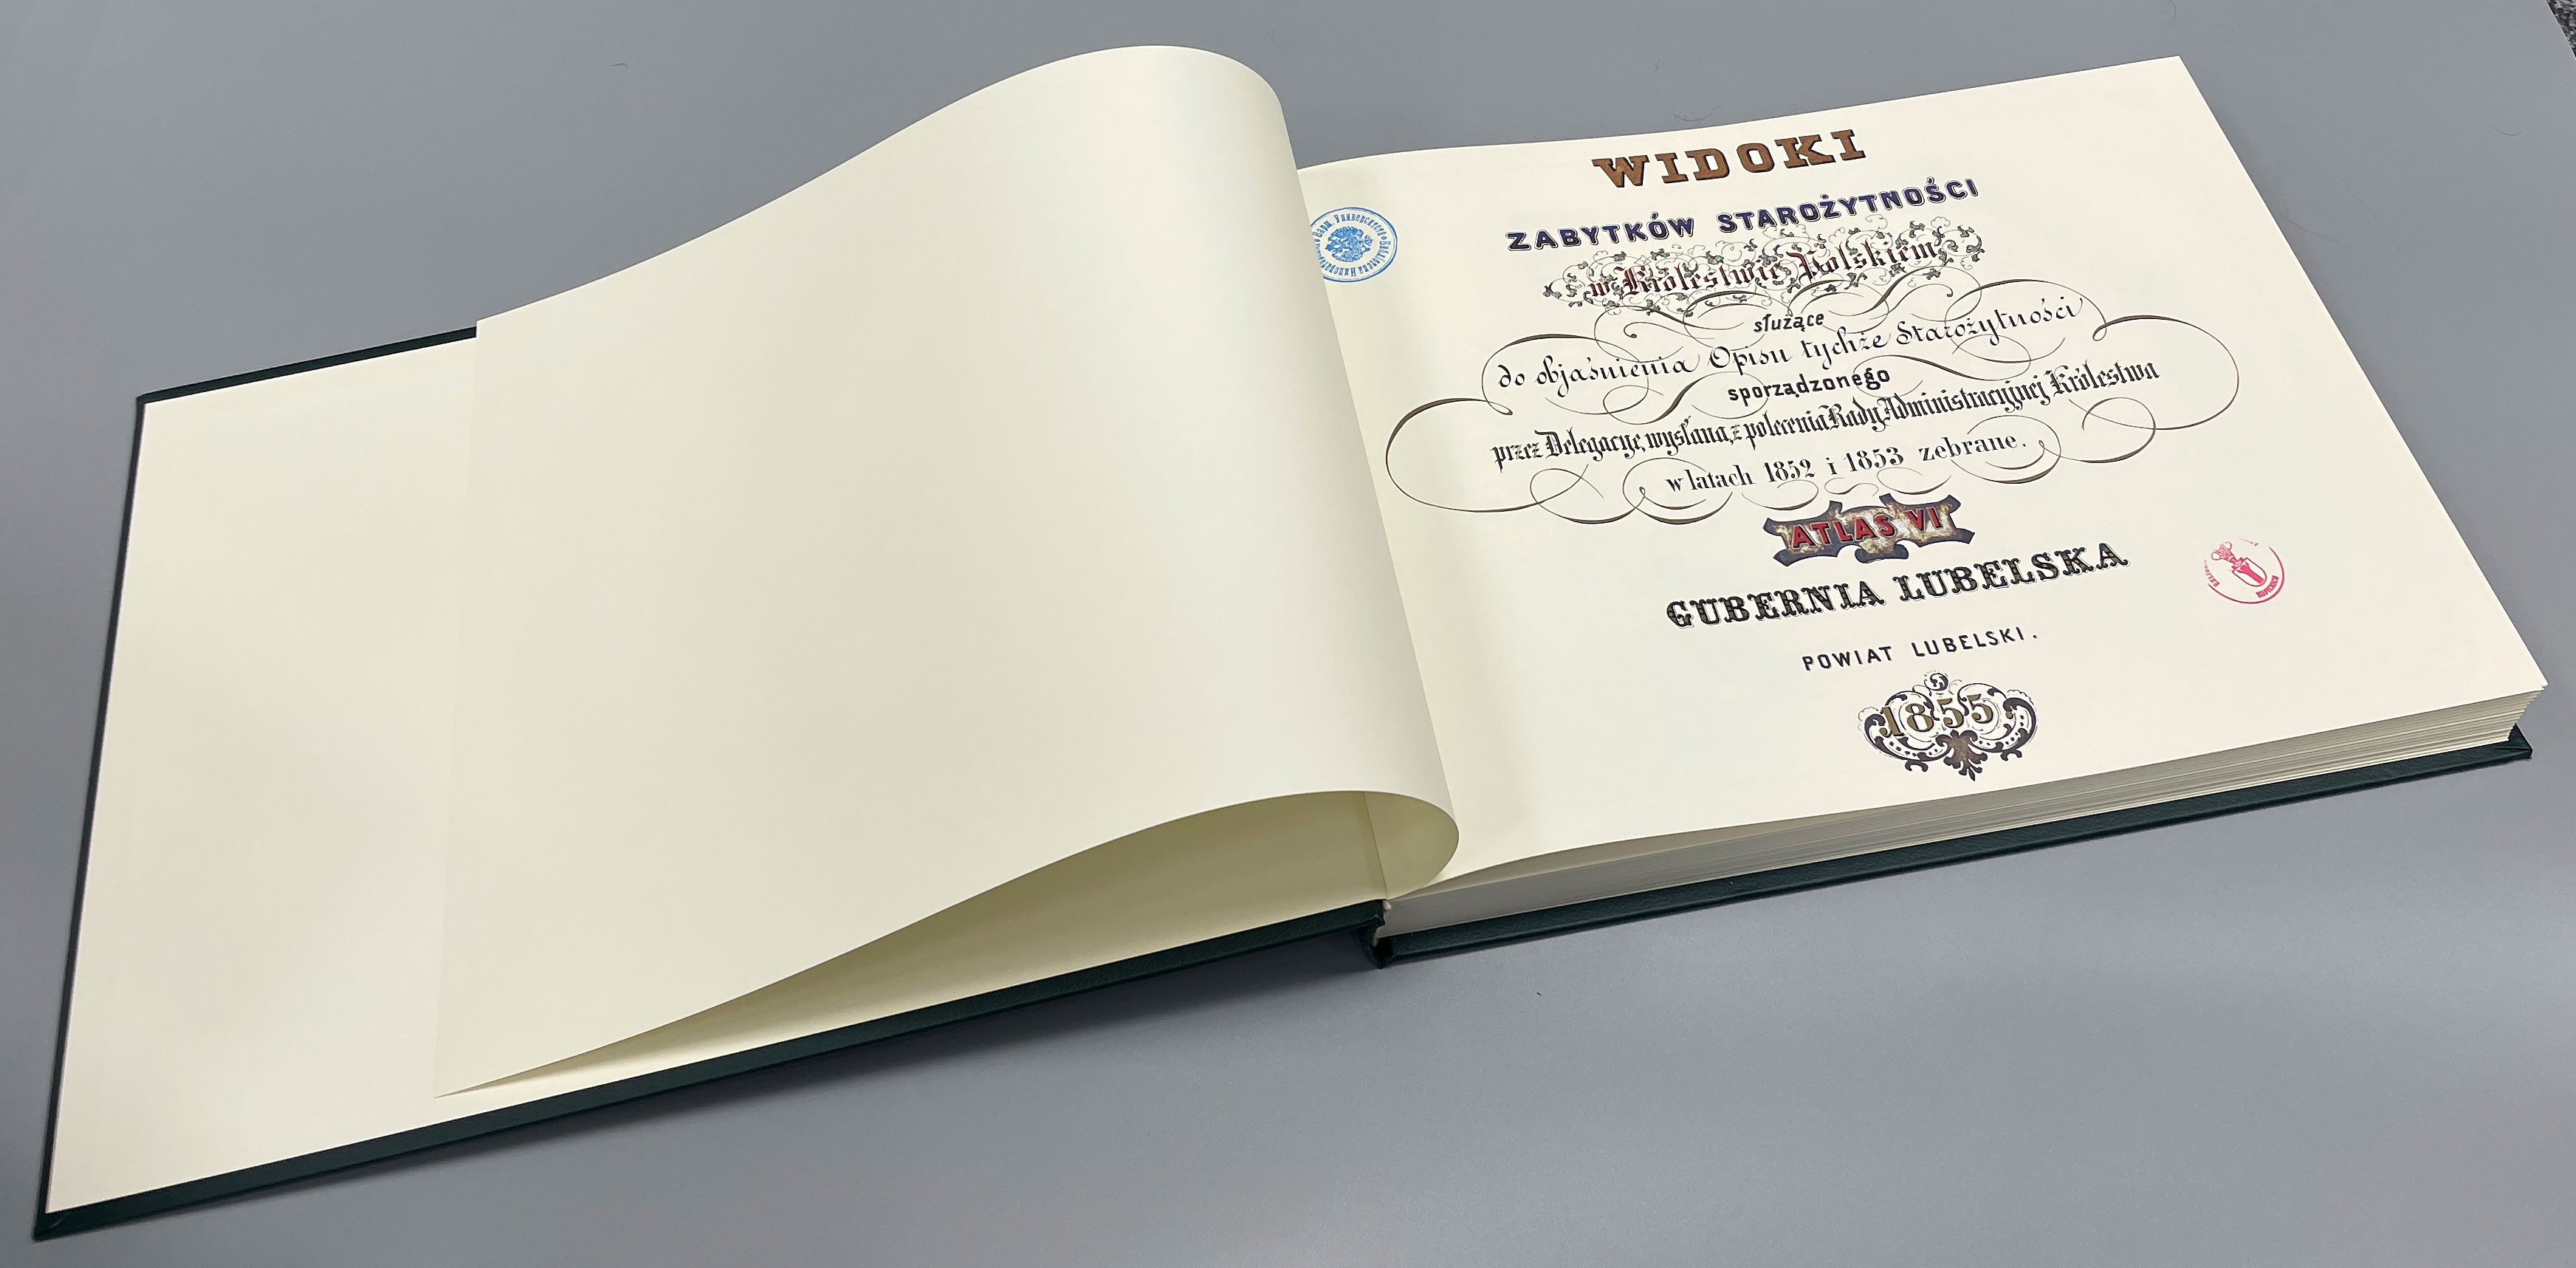 WIDOKI
ZABYTKÓW STAROŻYTNOŚCI
w Królestwie Polskiem
służące
do objaśnienia Opisu tychże Starożytności
sporządzonego
przez Delegacyę, wysłaną z polecenia Rady Administracyjnej Królestwa
w latach 1852 i 1853 zebrane.
ATLAS VI
GUBERNIA LUBELSKA
POWIAT LUBELSKI.
1855.